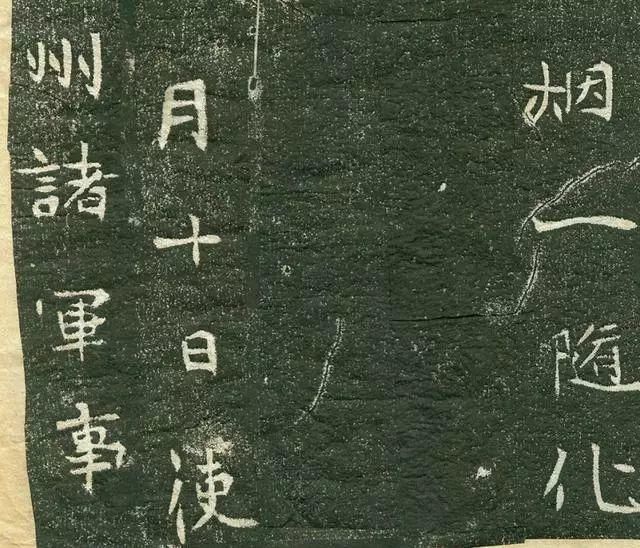 一随化
月十日使
州諸軍事